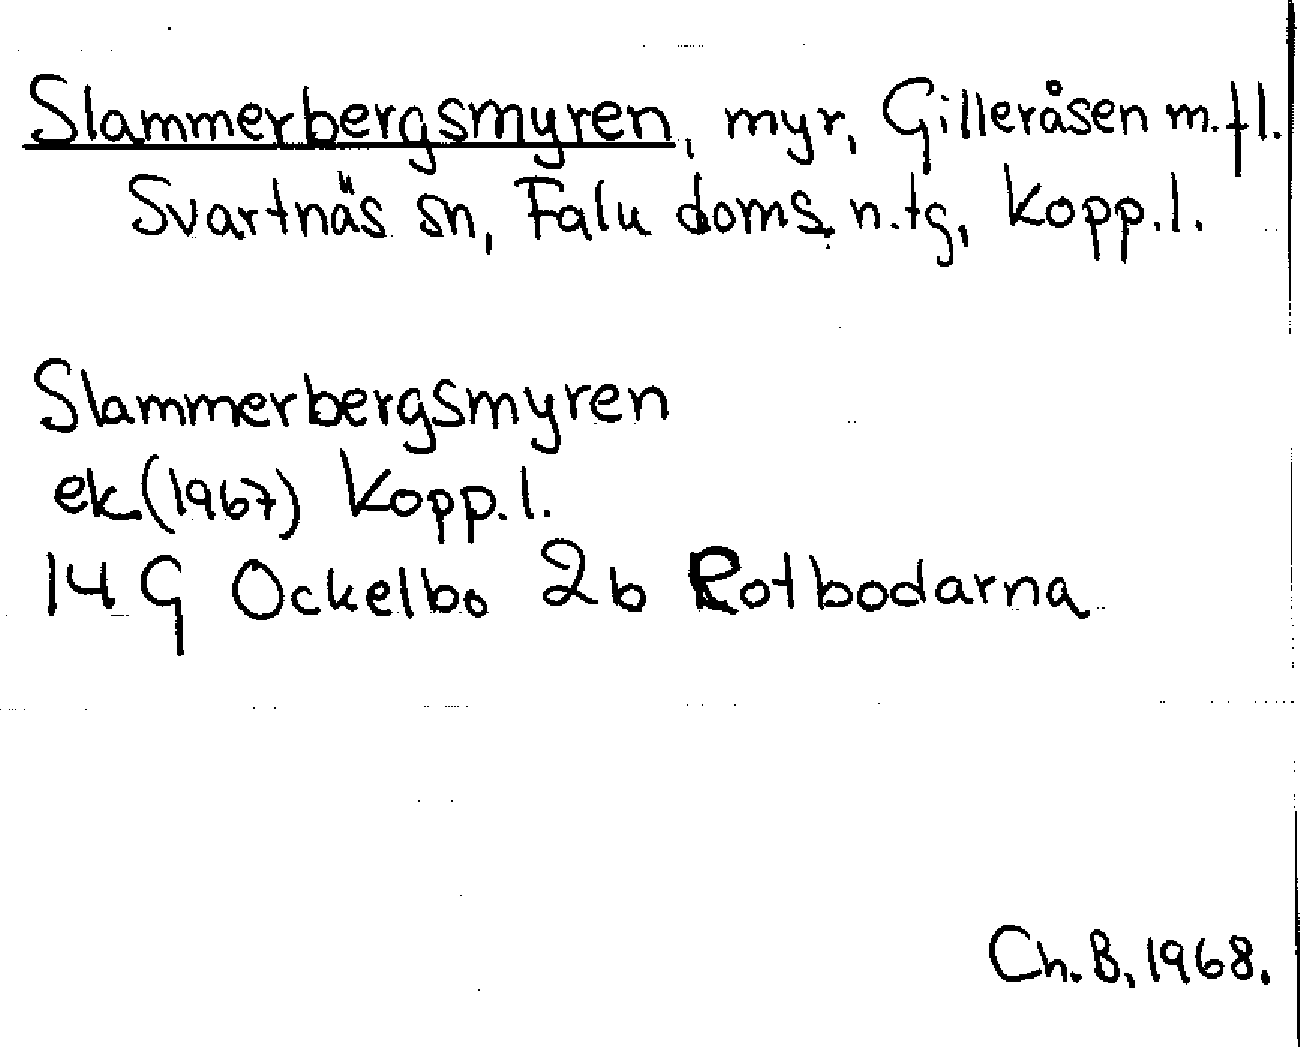 Slammerbergsmyren, myr, Gilleråsen m.fl.
Svartnäs sn, Falu doms. n.tg, Kopp.l.
Slammerbergsmyren
ek(1967) Kopp.l.
14 G Ockelbo 2b Rotbodarna
Ch.B, 1968.